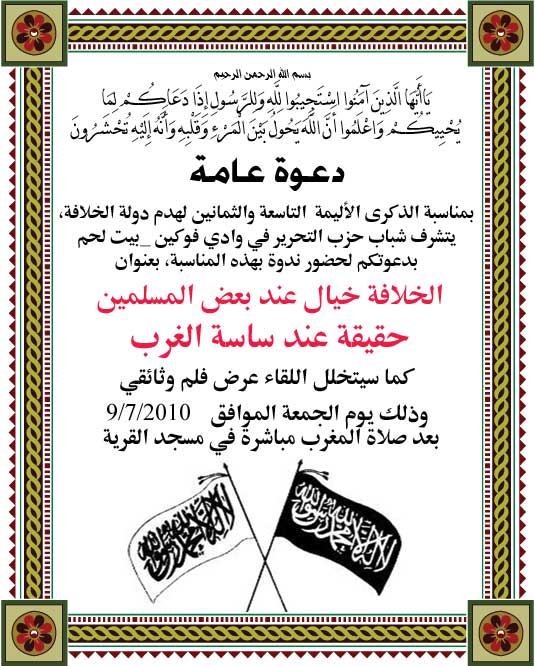 بسم الله الرحمن الرحيم
يَاأَيُّهَا الَّذِينَ آمَنُوا اسْتَجِيبُوا لِلَّهِ وَلِلرَّسُولِ إِذَا دَعَاكُمْ لِمَا
يُحْيِيكُمْ وَاعْلَمُوا أَنَّ اللَّهَ يَحُولُ بَيْنَ الْمَرْءِ وَقَلْبِهِ وَأَنَّهُ إِلَيْهِ تُحْشَرُونَ
دعوة عامة
بمناسبة الذكرى الأليمة التاسعة والثمانين لهدم دولة الخلافة،
يتشرف شباب حزب التحرير في وادي فوكين _بيت لحم
بدعوتكم لحضور ندوة بهذه المناسبة، بعنوان
الخلافة خيال عند بعض المسلمين
حقيقة عند ساسة الغرب
كما سيتخلل اللقاء عرض فلم وثائقي
وذلك يوم الجمعة الموافق 9/7/2010
بعد صلاة المغرب مباشرة في مسجد القرية
لا إله إلا الله محمد رسول الله
لا إله إلا الله محمد رسول الله